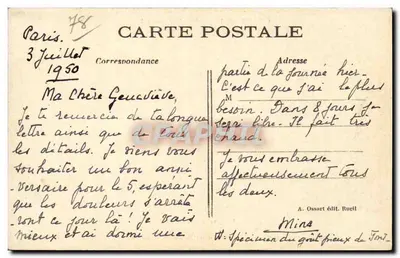 78
Paris.
3 Juillet
1950
CARTE POSTALE
Correspondance
Adresse
Ma Chère Geneviève,
Je te remercie de ta longue
lettre ainsi que de tous
les détails. Je viens vous
souhaiter un bon anni-
versaire pour le 5, espérant
que les douleurs s'arrête-
ront ce jour là ! Je vais
mieux et ai dormi une
partie de la journée hier.
C'est ce que j'ai le plus
M
besoin. Dans 8 jours je
serai libre. Il fait très
chaud.
Je vous embrasse
affectueusement tous
les deux.
A. Ossort édit. Rueil
Mine
Spécimen du goût